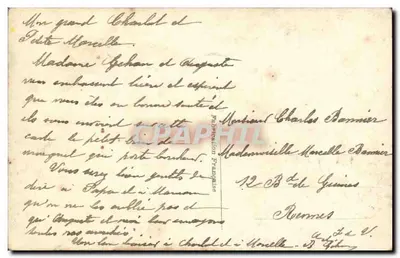 Mon grand Charlot et
Petite Marcelle
Madame Jehan et Auguste
vous embrassent bien et espèrent
que vous êtes en bonne santé et
ils vous envoient cette
carte le petit brin de
muguet qui porte bonheur.
Vous serez bien gentils de
dire à Papa et à Maman
qu'on ne les oublie pas et
qui Auguste et moi leur envoyons
toutes nos amitiés.
Un bon baiser à Charlot et à Marcelle
Fabrication Française
Monsieur Charles Bannier
Mademoiselle Marcelle Bannier
12 Bd de Guines
Rennes
I. & V.
CPAPHIL